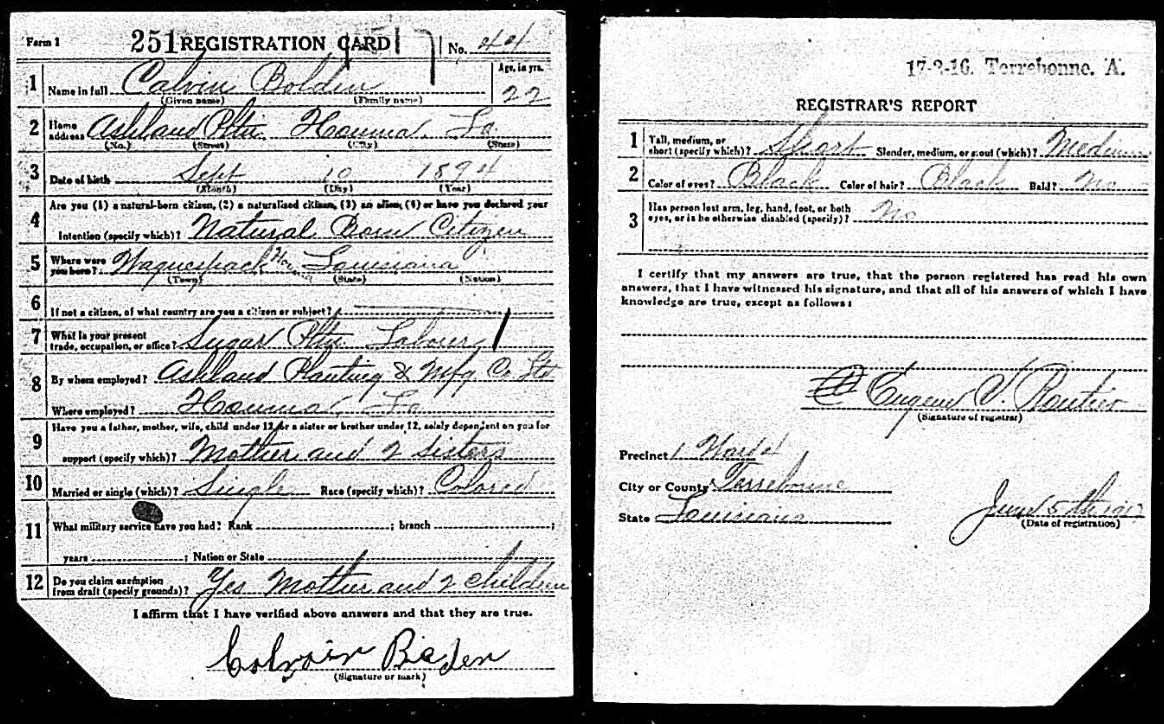 Form 1 251 REGISTRATION CARD No. 44
1 Name in full Calvin Bolden Age, in yrs. 22
(Given name) (Family name)
2 Home address Ashland Pltn. Houma, La
(No.) (Street) (City) (State)
3 Date of birth Sept 10 1894
(Month) (Day) (Year)
Are you (1) a natural-born citizen, (2) a naturalized citizen, (3) an alien, (4) or have you declared your
4 intention (specify which)? Natural Born Citizen
5 Where were you born? Waguespack Houma Louisiana
(Town) (State) (Nation)
6 If not a citizen, of what country are you a citizen or subject?
7 What is your present trade, occupation, or office? Sugar Pltn Labourer
8 By whom employed? Ashland Planting & Mfg Co Ltd
Where employed? Houma, La
Have you a father, mother, wife, child under 12, or a sister or brother under 12, solely dependent on you for
9 support (specify which)? Mother and 2 sisters
10 Married or single (which)? Single Race (specify which)? Colored
11 What military service have you had? Rank ; branch ;
years ; Nation or State
12 Do you claim exemption from draft (specify grounds)? Yes Mother and 2 children
I affirm that I have verified above answers and that they are true.
(Signature or mark)
17-2-16. Terrebonne. A.
REGISTRAR'S REPORT
1 Tall, medium, or short (specify which)? Short Slender, medium, or stout (which)? Medium
2 Color of eyes? Black Color of hair? Black Bald? No
3 Has person lost arm, leg, hand, foot, or both eyes, or is he otherwise disabled (specify)? No
I certify that my answers are true, that the person registered has read his own
answers, that I have witnessed his signature, and that all of his answers of which I have
knowledge are true, except as follows:
Eugene V.
(Signature of registrar)
Precinct 1 Ward 4
City or County Terrebonne
State Louisiana
June 5th 1917
(Date of registration)